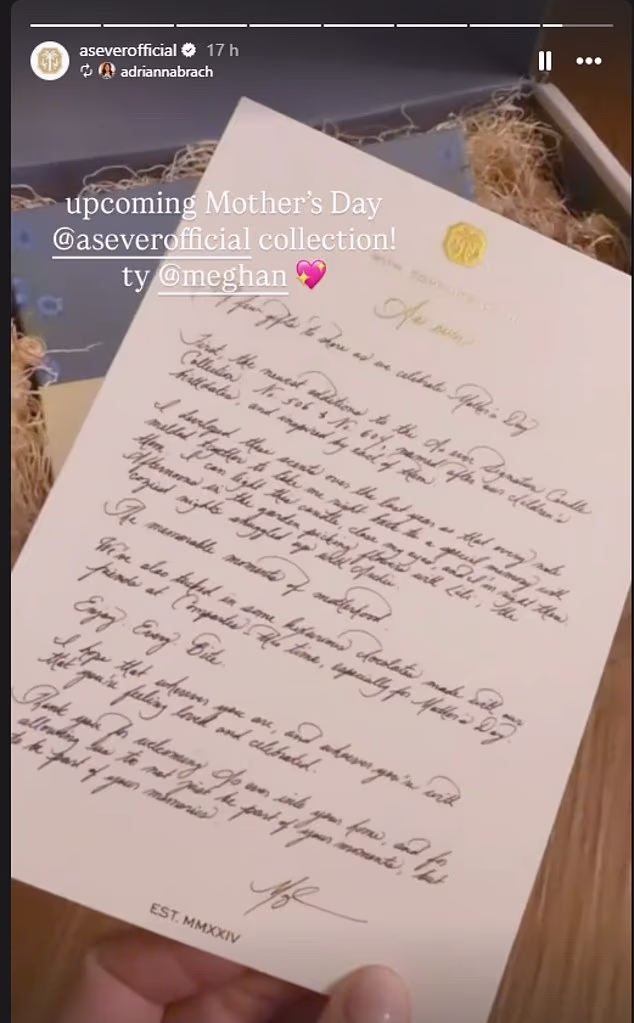 aseverofficial 17 h
adriannabrach
upcoming Mother's Day
@aseverofficial collection!
ty @meghan 💖
As ever
A few gifts to share as we celebrate Mother's Day
First, the newest additions to the As ever Signature Candle
Collection, No 506 & No 604, named after our children's
birthdates, and inspired by each of them.
I developed these scents over the last year, so that every note
melded together to take me right back to a special memory with
them. I can light this candle, close my eyes, and I'm right there.
Afternoons in the garden picking flowers with Lili, the
coziest nights snuggled up with Archie.
The memorable moments of motherhood.
We've also tucked in some chocolates made with our
friends at Compartés this time, especially for Mother's Day.
Enjoy. Every. Bite.
I hope that wherever you are, and whoever you're with
that you're feeling loved and celebrated.
Thank you for welcoming As ever into your home, and for
allowing us to not just be part of your moments, but
to be part of your memories
EST. MMXXIV